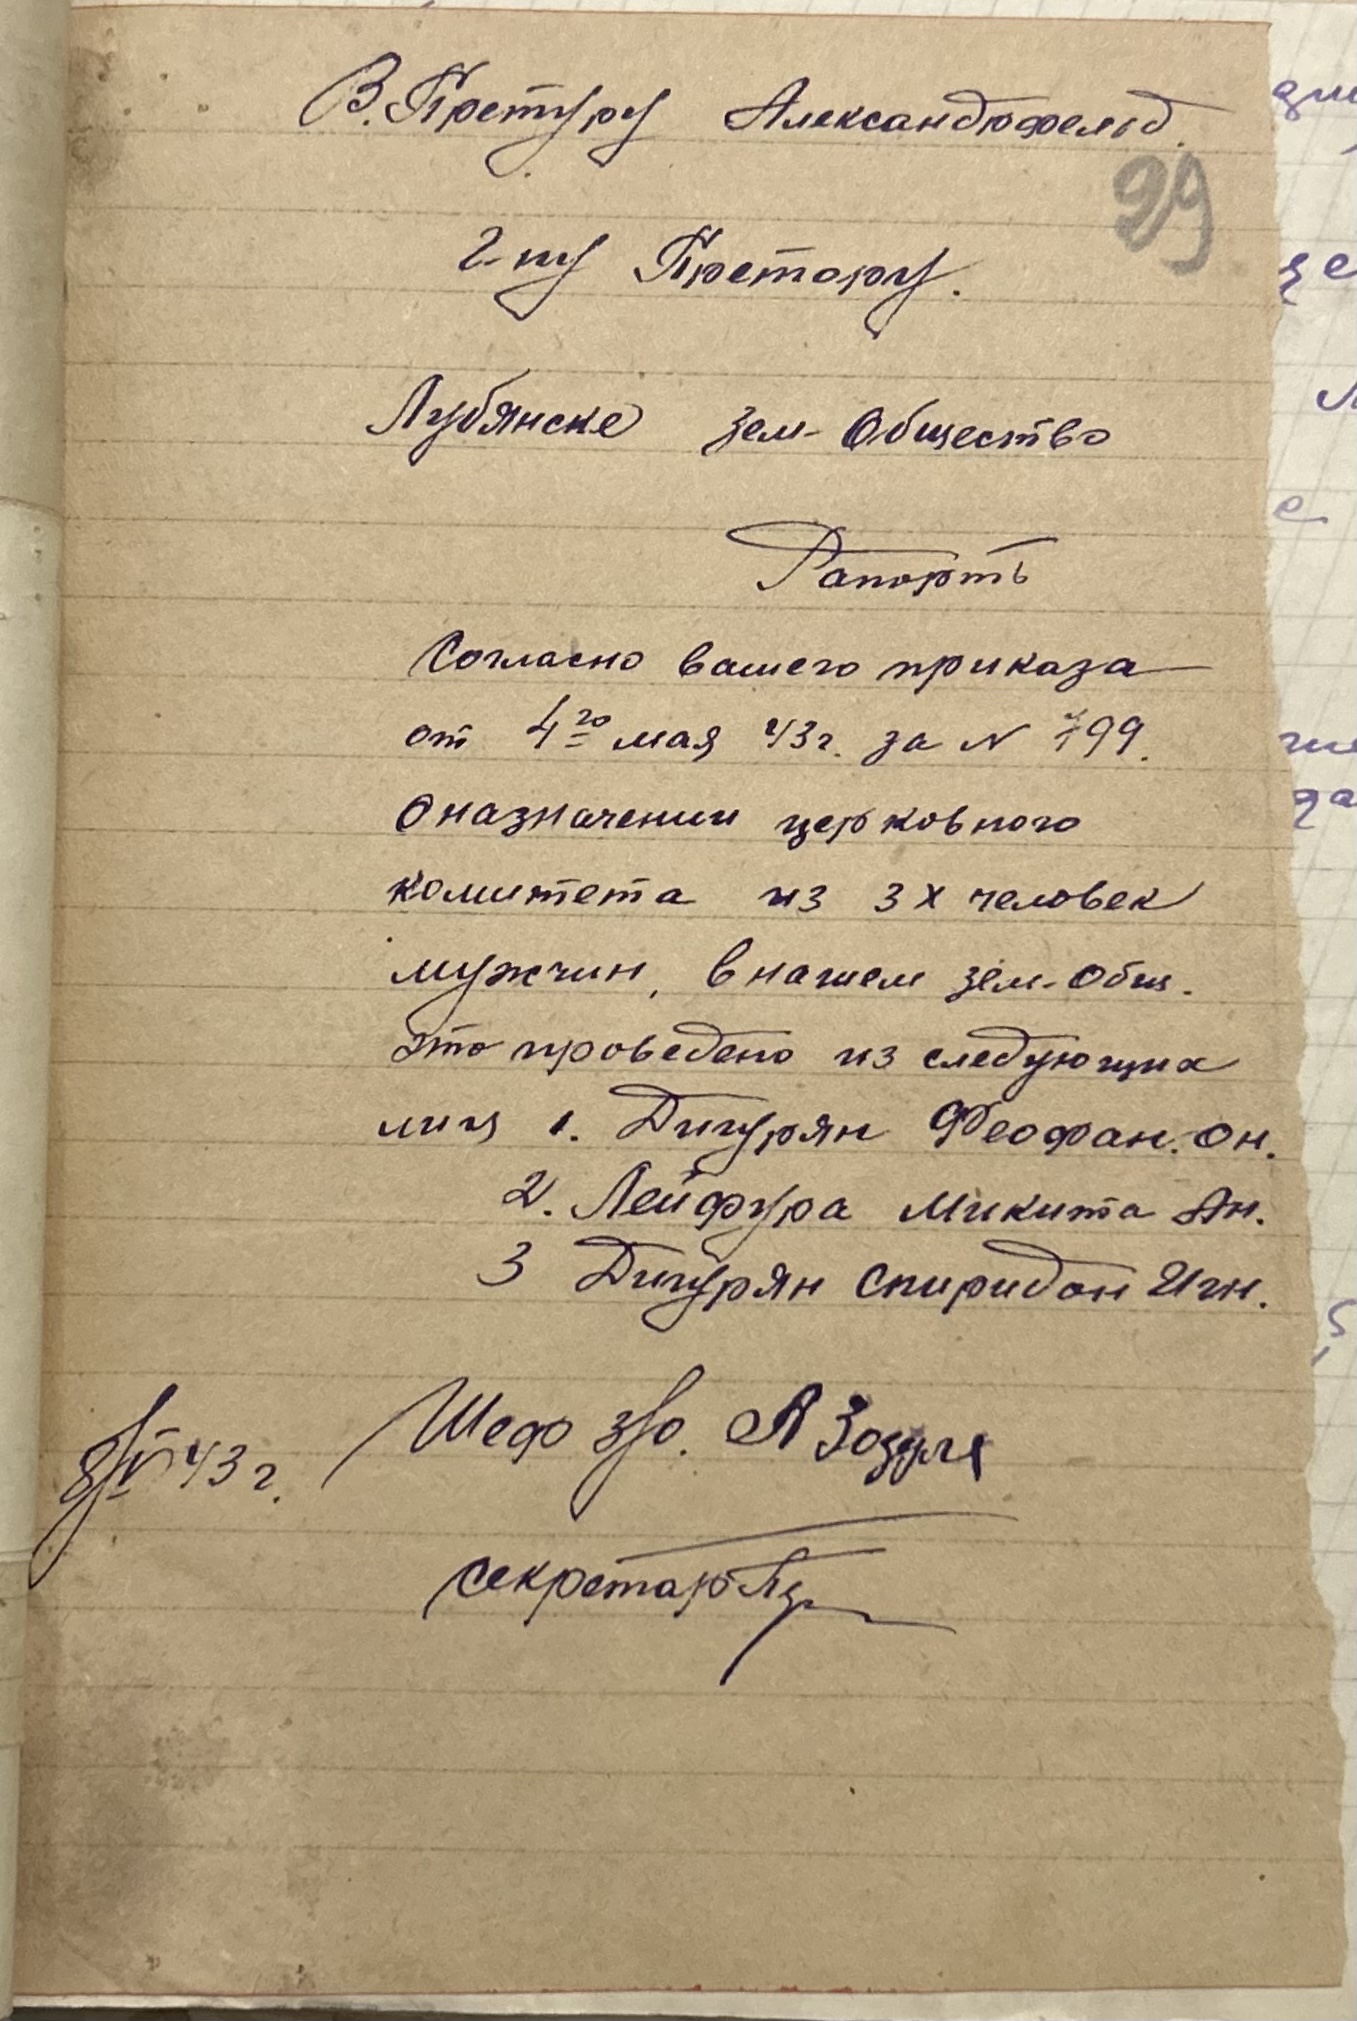 В. Претуру Александрфельд.
29
г-ну Претору.
Лубянске зем-Общество
Рапортъ
Согласно вашего приказа
от 4го мая 43г. за N 799.
О назначении церковного
комитета из 3х человек
мужчин, в нашем зем-Общ.
это проведено из следующих
лиц 1. Дигурян Феофан. Он.
2. Лейфура Микита Ан.
3 Дигурян Спиридон Игн.
8/V 43 г. Шеф з/о. А Зозуля
секретар